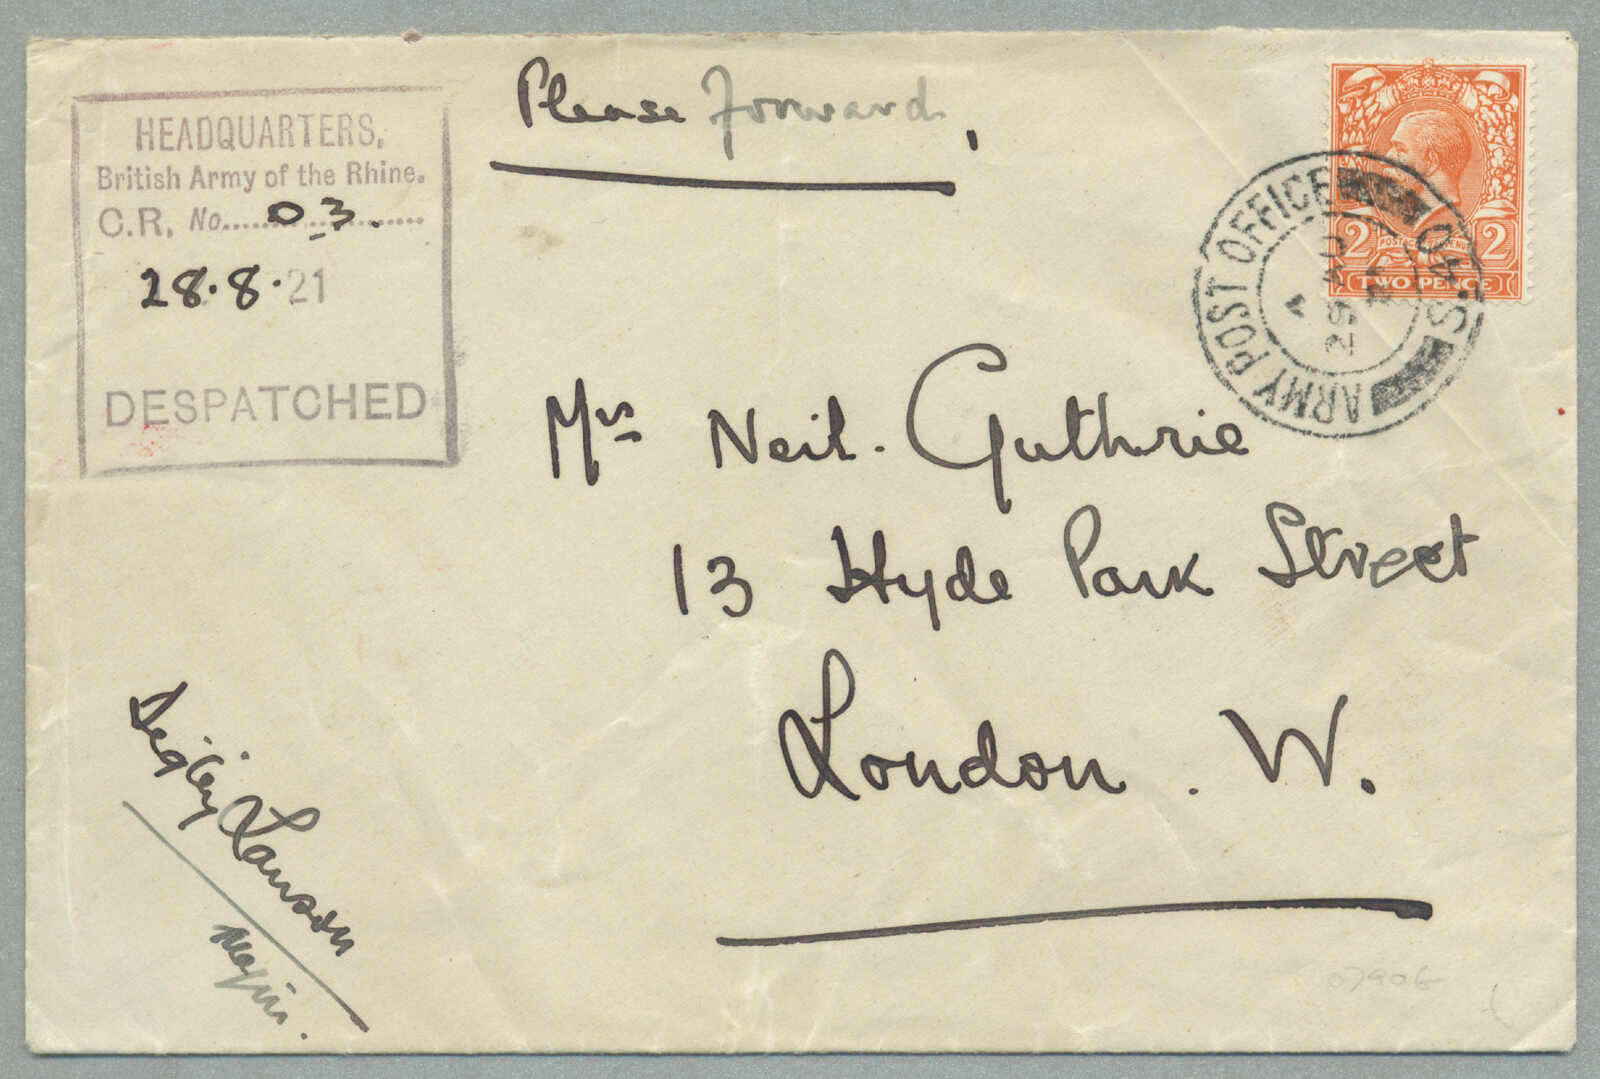 HEADQUARTERS,
British Army of the Rhine.
C.R. No. 03.
28.8.21
DESPATCHED
Please forward,
2 2
TWO PENCE
ARMY POST OFFICE S.40
29 AU
21
Mrs Neil. Guthrie
13 Hyde Park Street
London. W.
Lawson
Major.